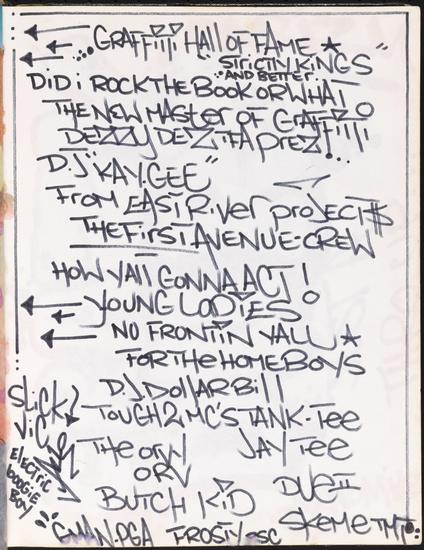 GRAFFITI HALL OF FAME ★
"STRICTLY KINGS"
AND BETTER
DID i ROCK THE BOOK OR WHAT
THE NEW MASTER OF GRAFFITI
DEZZY DEZ TFA PREZ!
D.J "KAY GEE"
FROM EAST RIVER PROJECT$
THE FIRST AVENUE CREW
HOW YALL GONNA ACT!
YOUNG LADIES
NO FRONTIN YALL ★
FOR THE HOME BOYS
D.J. DOLLAR BILL
TOUGH 2 MC'S TANK-TEE
JAY TEE
SLICK
VIC
ELECTRIC
BOOGIE
BOY
BUTCH KID
DUE II
GMAN-PGA FROSTY-SC
SKEME TMT